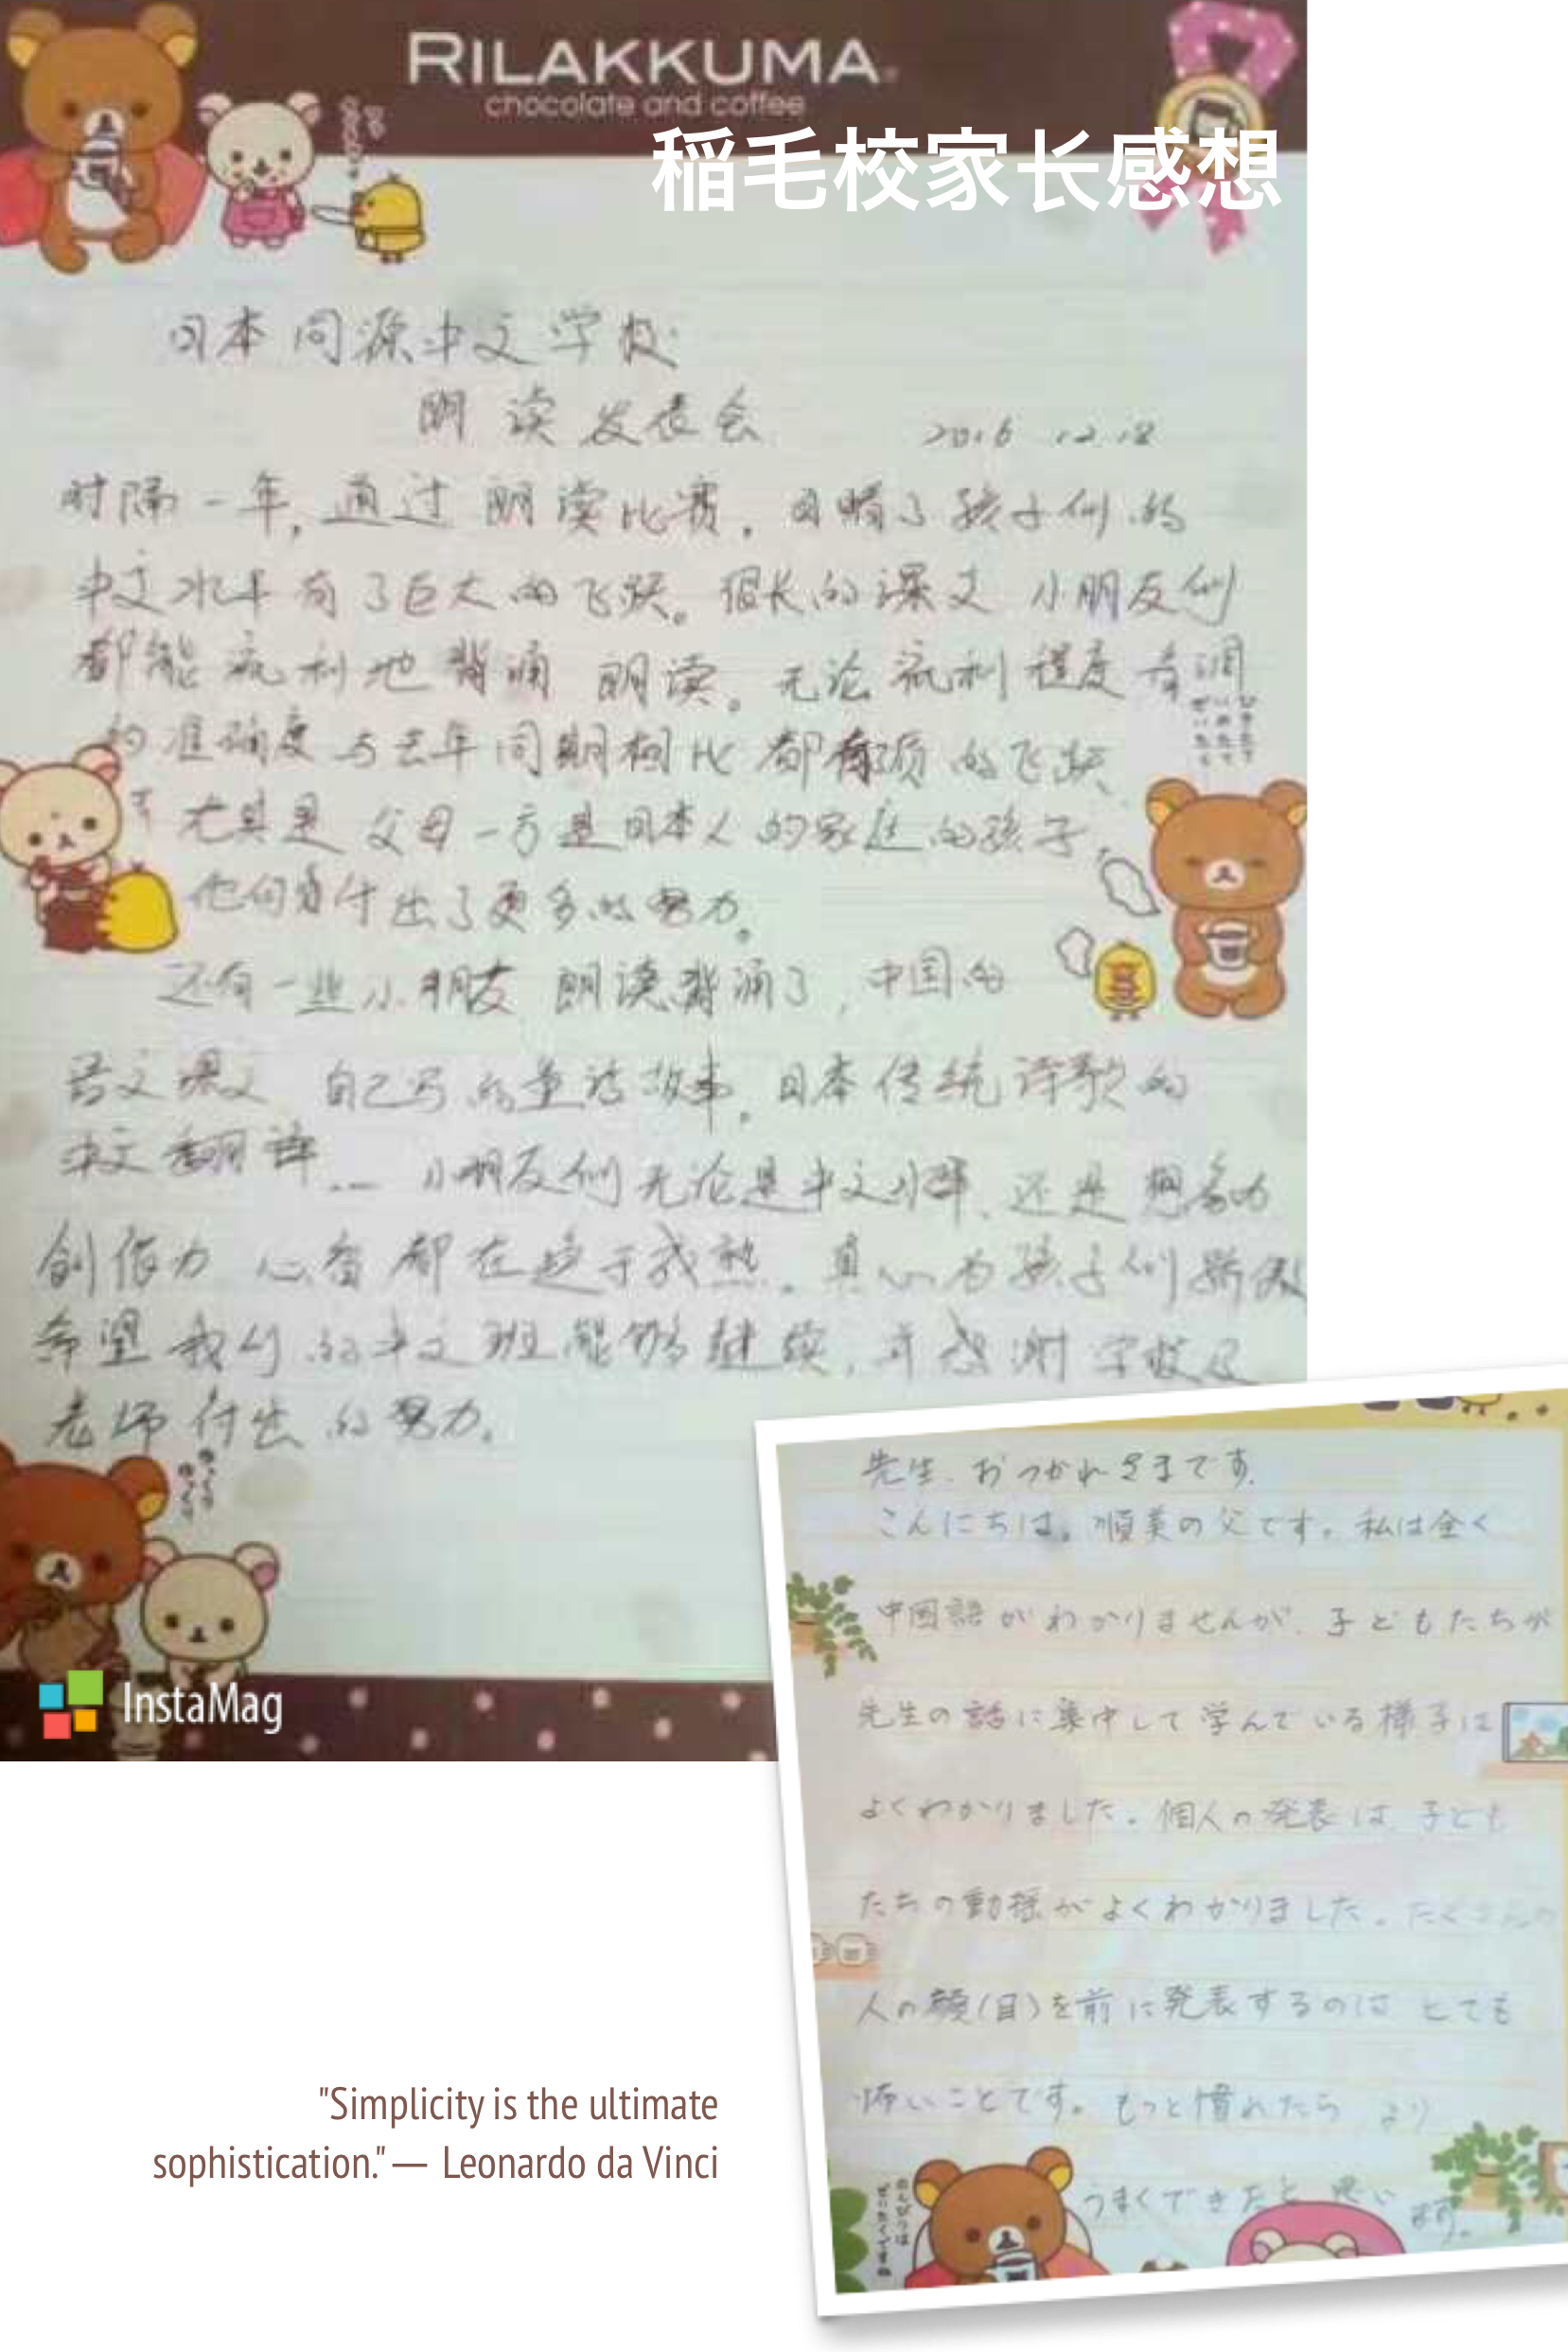 RILAKKUMA
chocolate and coffee
稲毛校家长感想
日本同源中文学校
朗读发表会 2016 12.18
时隔一年,通过 朗读比赛.目睹了孩子们的
中文水平有了巨大的飞跃。很长的课文 小朋友们
都能流利地背诵 朗读。无论流利程度 音调
的准确度与去年同期相比都有 的飞跃、
尤其是 父母一方是日本人的家庭的孩子.
他们 付出了更多的努力。
还有一些小朋友 朗读背诵了,中国的
语文课文 自己写的童话故事。日本传统诗歌的
中文翻译 … 小朋友们无论是中文水平、还是 想象力
创作力 心智都在趋于成熟.真心为孩子们骄傲
希望我们的中文班能够继续,并感谢学校及
老师付出的努力.
InstaMag
先生.おつかれさまです.
こんにちは。順美の父です。私は全く
中国語がわかりませんが.子どもたちが
先生の話に集中して学んでいる様子は
よくわかりました。個人の発表は 子ども
たちの動揺がよくわかりました。たくさんの
人の顔(目)を前に発表するのは とても
怖いことです。もっと慣れたら より
うまくできたと思います。
のんびりは
ぜいたくですね
"Simplicity is the ultimate
sophistication."— Leonardo da Vinci